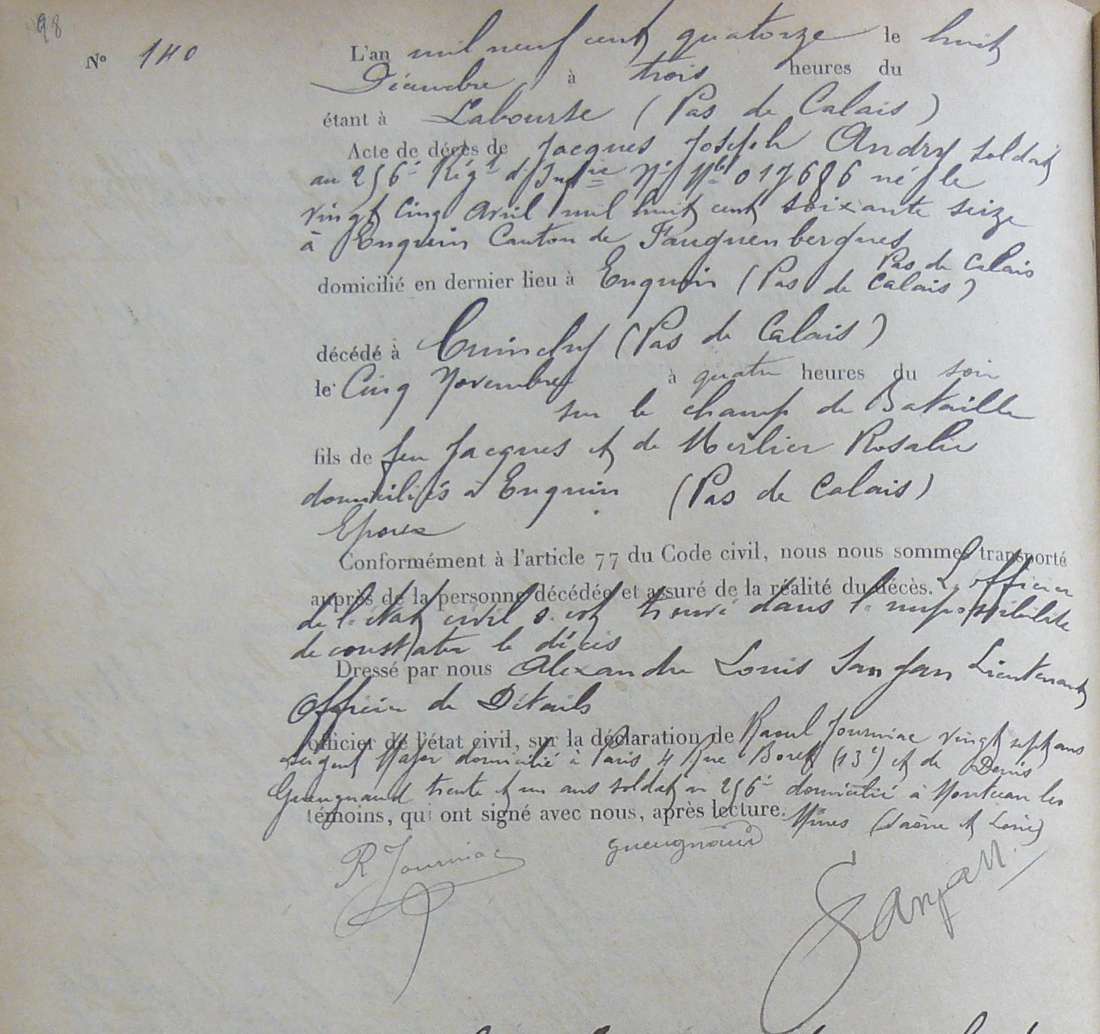 98
N° 140
L'an mil neuf cent quatorze le huit
Décembre à trois heures du
étant à Labourse (Pas de Calais)
Acte de décès de Jacques Joseph Andry soldat
au 256e Régt d'Infrie No Mle 017686 né le
vingt cinq Avril mil huit cent soixante seize
à Enguin Canton de Fauquembergues
Pas de Calais
domicilié en dernier lieu à Enguin (Pas de Calais)
décédé à Cuinchy (Pas de Calais)
le Cinq Novembre à quatre heures du soir
sur le champ de Bataille
fils de feu Jacques et de Merlier Rosalie
domiciliés à Enguin (Pas de Calais)
Epoux
Conformément à l'article 77 du Code civil, nous nous sommes transporté
auprès de la personne décédée et assuré de la réalité du décès. L'officier
de l'état civil s'est trouvé dans l'impossibilité
de constater le décès
Dressé par nous Alexandre Louis Sanjan Lieutenant
Officier de Détails
officier de l'état civil, sur la déclaration de Raoul Journiac vingt sept ans
Sergent Major domicilié à Paris 4 Rue (13e) et de Denis
Gueugnaud trente et un ans soldat au 256e domicilié à Montceau les
témoins, qui ont signé avec nous, après lecture. Mines (Saône et Loire)
R Journiac Gueugnaud Sanjan